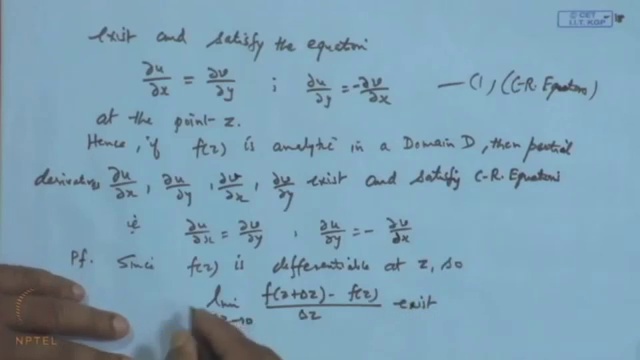 © CET
I.I.T. KGP
exist and satisfy the equation
∂u/∂x = ∂v/∂y ; ∂u/∂y = -∂v/∂x —(1) (C-R. Equations)
at the point z.
Hence, if f(z) is analytic in a Domain D, then partial
derivatives ∂u/∂x, ∂u/∂y, ∂v/∂x, ∂v/∂y exist and satisfy C-R. Equations
ie ∂u/∂x = ∂v/∂y , ∂u/∂y = - ∂v/∂x
Pf. Since f(z) is differentiable at z, so
lim f(z+Δz) - f(z) / Δz exist
NPTEL